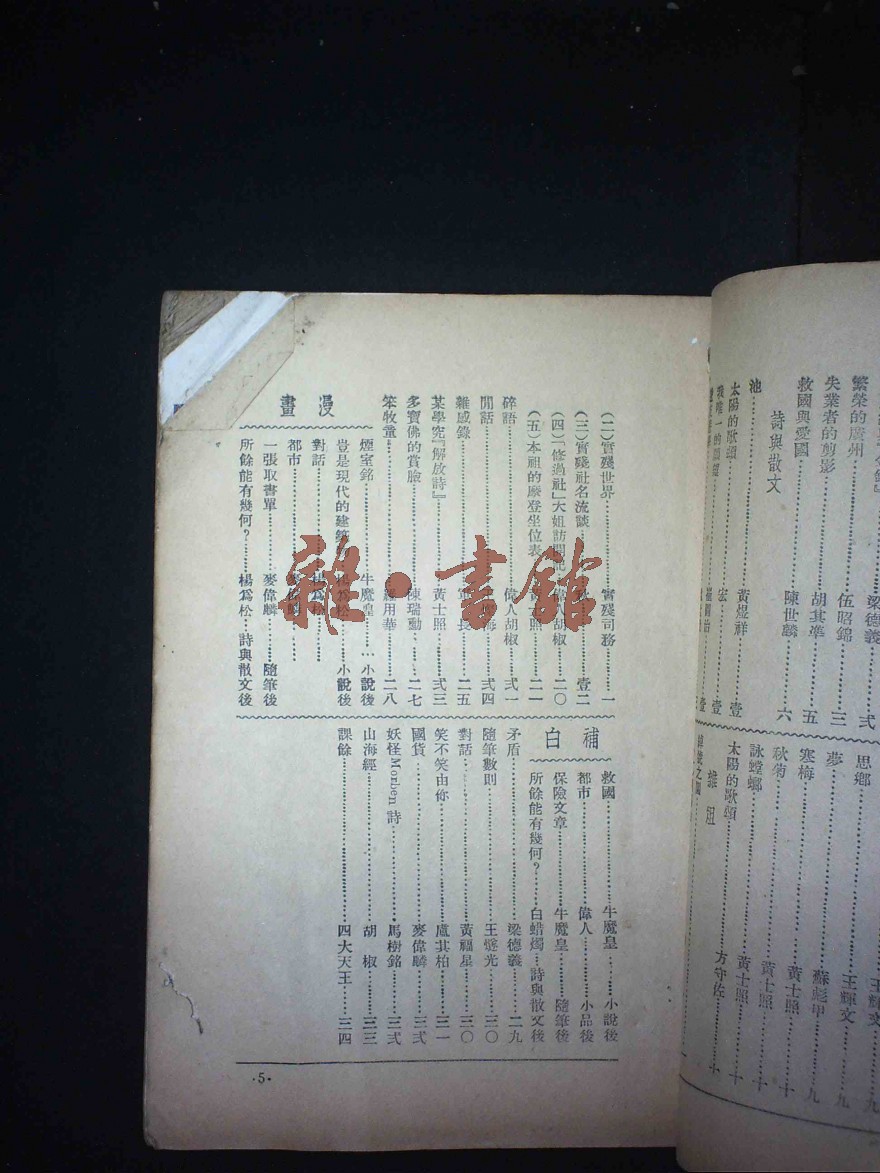 繁榮的廣州……伍昭錦……三
失業者的剪影……胡其準……五
救國與愛國……陳世麟……六
詩與散文
池……黃煜祥……壹
太陽的歌頌……宏……壹
思鄉……王輝文……九
夢……王輝文……九
寒梅……蘇彪甲……九
秋菊……黃士照……十
詠螳螂……黃士照……十
太陽的歌頌……黃士照……十
方守佐……十
(二)實殘世界……實殘司務……一
(三)實殘社名流談……壹二
(四)「修過社」大姐訪問記……偉人胡椒……二〇
(五)本祖的摩登坐位表……黃士照……二一
碎語……偉人胡椒……弍一
閒話……弍四
雜感錄……軍長……二五
某學究『解放詩』……黃士照……弍三
多寶佛的賞臉……陳瑞勳……二七
笨牧童……羅用華……二八
漫畫
煙室銘……牛魔皇……小說後
豈是現代的建築……楊爲松……小說後
對話……楊爲松……
都市……麥偉麟……
一張取書單……麥偉麟……隨筆後
所餘能有幾何?……楊爲松……詩與散文後
補白
救國……牛魔皇……小說後
都市……偉人……小品後
保險文章……牛魔皇……隨筆後
所餘能有幾何?……白蜡燭……詩與散文後
矛盾……梁德義……二九
隨筆數則……王燧光……三〇
對話……黃福星……三〇
笑不笑由你……盧其柏……三一
國貨……麥偉麟……三弍
妖怪Morden詩……馬樹銘……三弍
山海經……胡椒……三三
課餘……四大天王……三四
·5·
雜·書館